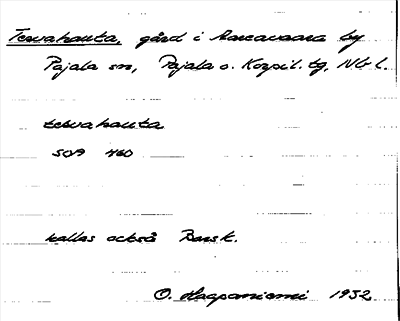 Tervahauta, gård i Aareavaara by
Pajala sn, Pajala o. Korpil. tg, Nb l.
tervahauta
kallas också Barsk.
O. Haapaniemi 1932